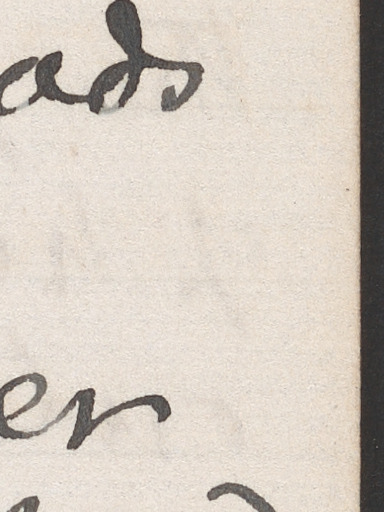 ads
er